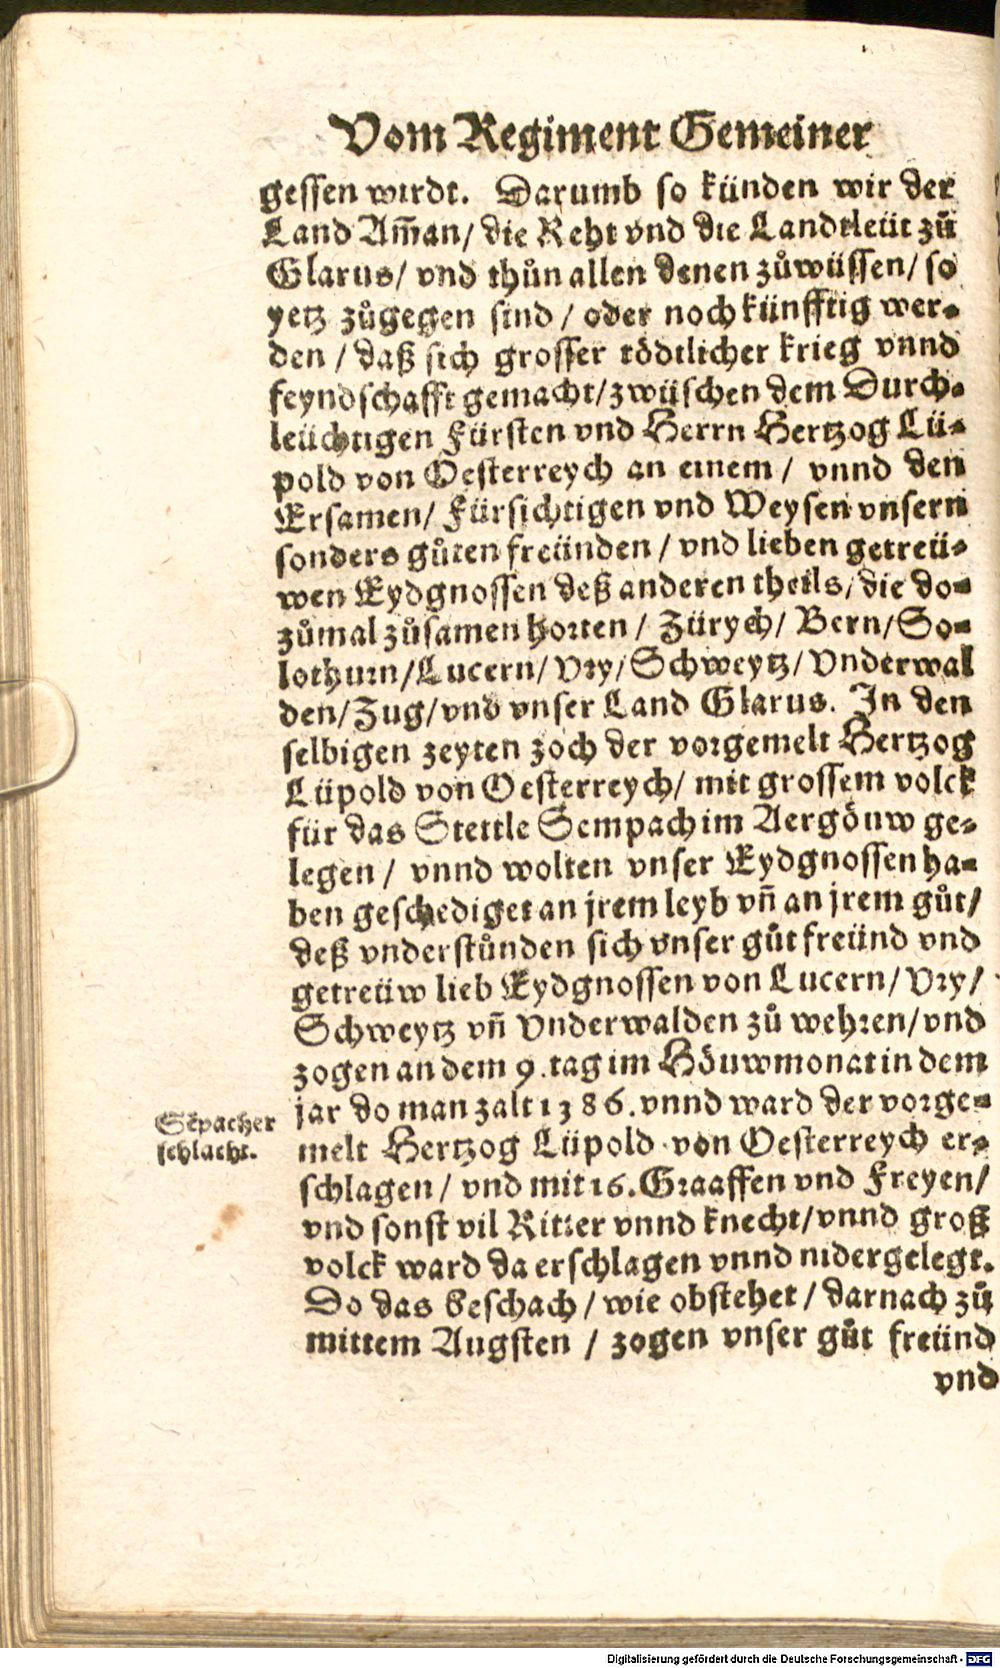 Vom Regiment Gemeiner
gessen wirdt. Darumb so künden wir der
Land Am̃an/ die Reht vnd die Landtleüt zů
Glarus/ vnd thůn allen denen zůwüssen/ so
yetz zůgegen sind / oder noch künfftig wer-
den / daß sich grosser tödtlicher krieg vnnd
feyndschafft gemacht/zwüschen dem Durch-
leüchtigen Fürsten vnd Herrn Hertzog Lü-
pold von Oesterreych an einem / vnnd den
Ersamen/ Fürsichtigen vnd Weysen vnsern
sonders gůten freünden / vnd lieben getreü-
wen Eydgnossen deß anderen theils/ die do-
zůmal zůsamen horten / Zürych/ Bern/So-
lothurn/Lucern/ Vry/ Schweytz/ Vnderwal
den/Zug/vnd vnser Land Glarus. In den
selbigen zeyten zoch der vorgemelt Hertzog
Lüpold von Oesterreych/ mit grossem volck
für das Stettle Sempach im Aergöuw ge-
legen / vnnd wolten vnser Eydgnossen ha-
ben geschediget an jrem leyb vñ an jrem gůt/
deß vnderstůnden sich vnser gůt freünd vnd
getreüw lieb Eydgnossen von Lucern/ Vry/
Schweytz vñ Vnderwalden zů wehren/vnd
zogen an dem 9. tag im Höuwmonat in dem
jar do man zalt 1386. vnnd ward der vorge-
melt Hertzog Lüpold von Oesterreych er-
schlagen / vnd mit 16. Graaffen vnd Freyen/
vnd sonst vil Ritter vnnd knecht/vnnd groß
volck ward da erschlagen vnnd nidergelegt.
Do das beschach / wie obstehet / darnach zů
mittem Augsten / zogen vnser gůt freünd
vnd
Sẽpacher
schlacht.
Digitalisierung gefördert durch die Deutsche Forschungsgemeinschaft - DFG